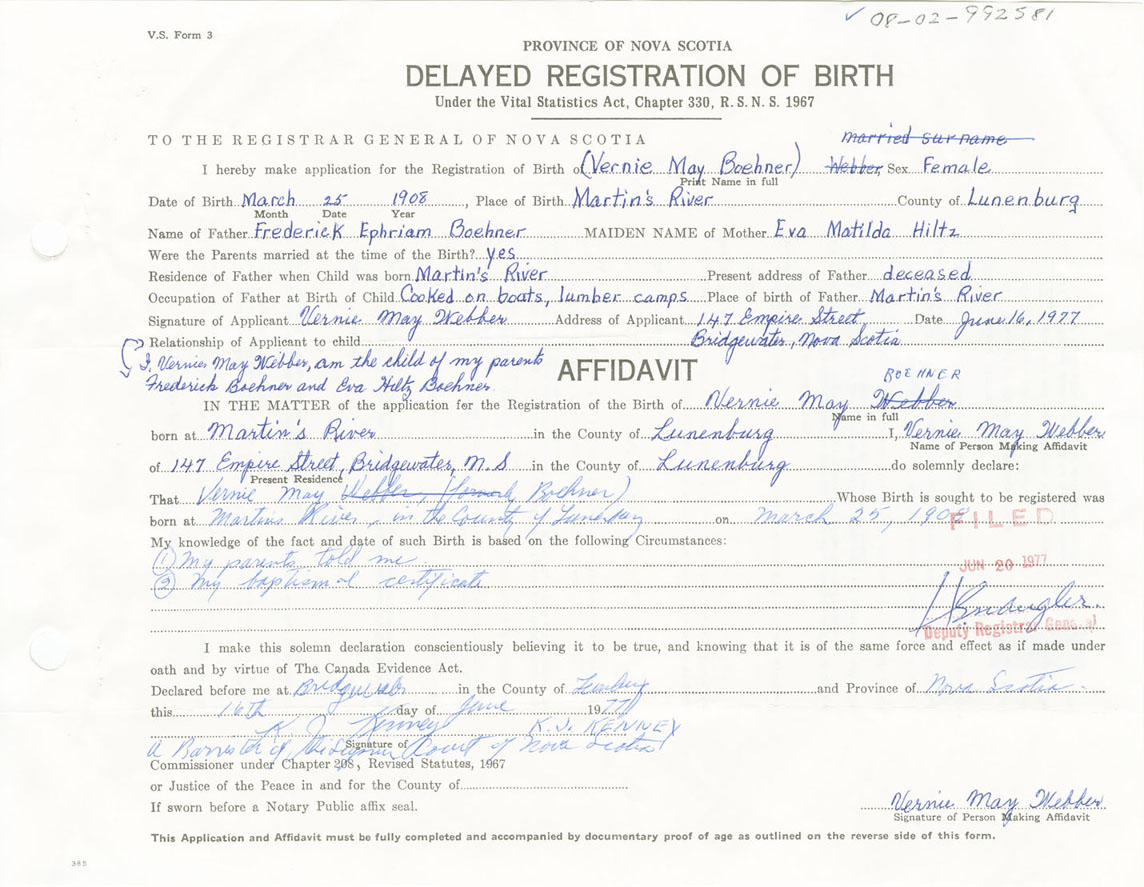 ✓ 08-02-992581
V.S. Form 3
PROVINCE OF NOVA SCOTIA
DELAYED REGISTRATION OF BIRTH
Under the Vital Statistics Act, Chapter 330, R.S.N.S. 1967
TO THE REGISTRAR GENERAL OF NOVA SCOTIA married surname
I hereby make application for the Registration of Birth of (Vernie May Boehner) Webber Sex Female
Print Name in full
Date of Birth March 25 1908, Place of Birth Martin's River County of Lunenburg
Month Date Year
Name of Father Frederick Ephriam Boehner MAIDEN NAME of Mother Eva Matilda Hiltz
Were the Parents married at the time of the Birth? yes
Residence of Father when Child was born Martin's River Present address of Father deceased
Occupation of Father at Birth of Child Cooked on boats, lumber camps Place of birth of Father Martin's River
Signature of Applicant Vernie May Webber Address of Applicant 147 Empire Street Date June 16, 1977
Relationship of Applicant to child Bridgewater, Nova Scotia
I, Vernie May Webber, am the child of my parents
Frederick Boehner and Eva Hiltz Boehner.
AFFIDAVIT
BOEHNER
IN THE MATTER of the application for the Registration of the Birth of Vernie May Webber
Name in full
born at Martin's River in the County of Lunenburg I, Vernie May Webber
Name of Person Making Affidavit
of 147 Empire Street, Bridgewater, N.S in the County of Lunenburg do solemnly declare:
Present Residence
That Vernie May Webber (formerly Boehner) Whose Birth is sought to be registered was
born at Martins River, in the County of Lunenburg on March 25, 1908
FILED
My knowledge of the fact and date of such Birth is based on the following Circumstances:
(1) My parents told me
(2) My baptismal certificate
JUN 20 1977
Deputy Registrar General
I make this solemn declaration conscientiously believing it to be true, and knowing that it is of the same force and effect as if made under
oath and by virtue of The Canada Evidence Act.
Declared before me at Bridgewater in the County of Lunenburg and Province of Nova Scotia.
this 16th day of June 1977
K. J. Kenney K.J. KENNEY
A Barrister of the Supreme Court of Nova Scotia
Signature of
Commissioner under Chapter 208, Revised Statutes, 1967
or Justice of the Peace in and for the County of
If sworn before a Notary Public affix seal.
Vernie May Webber
Signature of Person Making Affidavit
This Application and Affidavit must be fully completed and accompanied by documentary proof of age as outlined on the reverse side of this form.
385